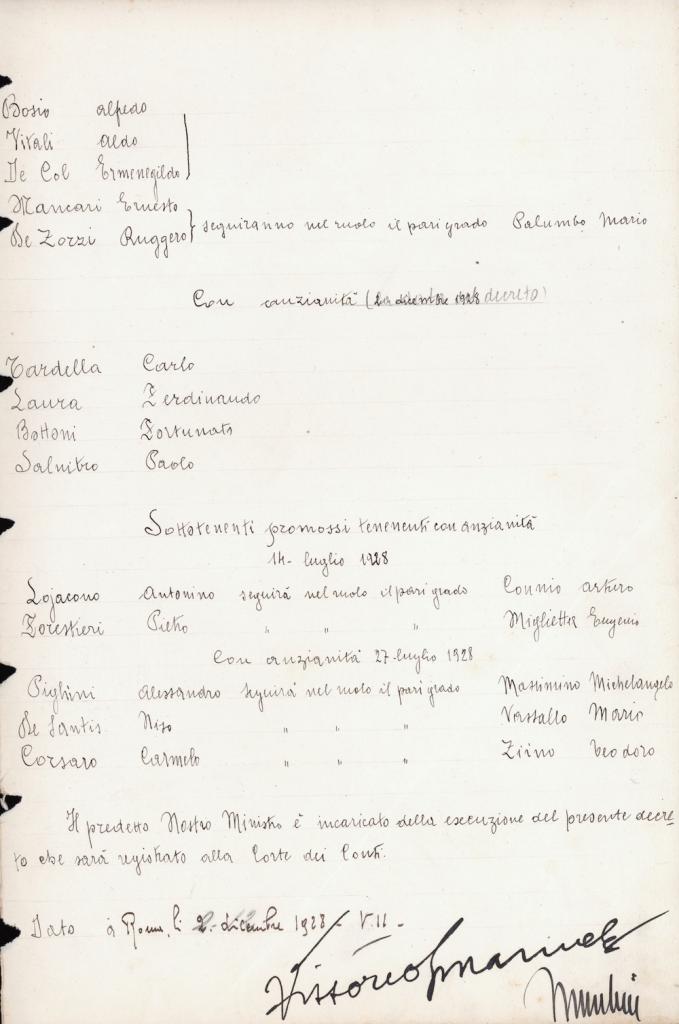 Bosio Alfredo
Vitali Aldo
De Col Ermenegildo
Mancari Ernesto
De Zorzi Ruggero seguiranno nel ruolo il pari grado Palumbo Mario
Con anzianità (2 dicembre 1928 decreto)
Tardella Carlo
Laura Ferdinando
Bottoni Fortunato
Salnitro Paolo
Sottotenenti promossi tenenenti con anzianità
14 - luglio 1928
Lojacono Antonino seguirà nel ruolo il pari grado Connio Arturo
Forestieri Pietro " " " Miglietta Eugenio
Con anzianità 27 - luglio 1928
Pighini Alessandro seguirà nel ruolo il pari grado Massimino Michelangelo
De Santis Niso " " " Vassallo Mario
Corsaro Carmelo " " " Ziino Teodoro
Il predetto Nostro Ministro è incaricato della esecuzione del presente decre=
to che sarà registrato alla Corte dei Conti.
Dato a Roma, lì 2 - dicembre 1928 - VII -
Vittorio Emanuele